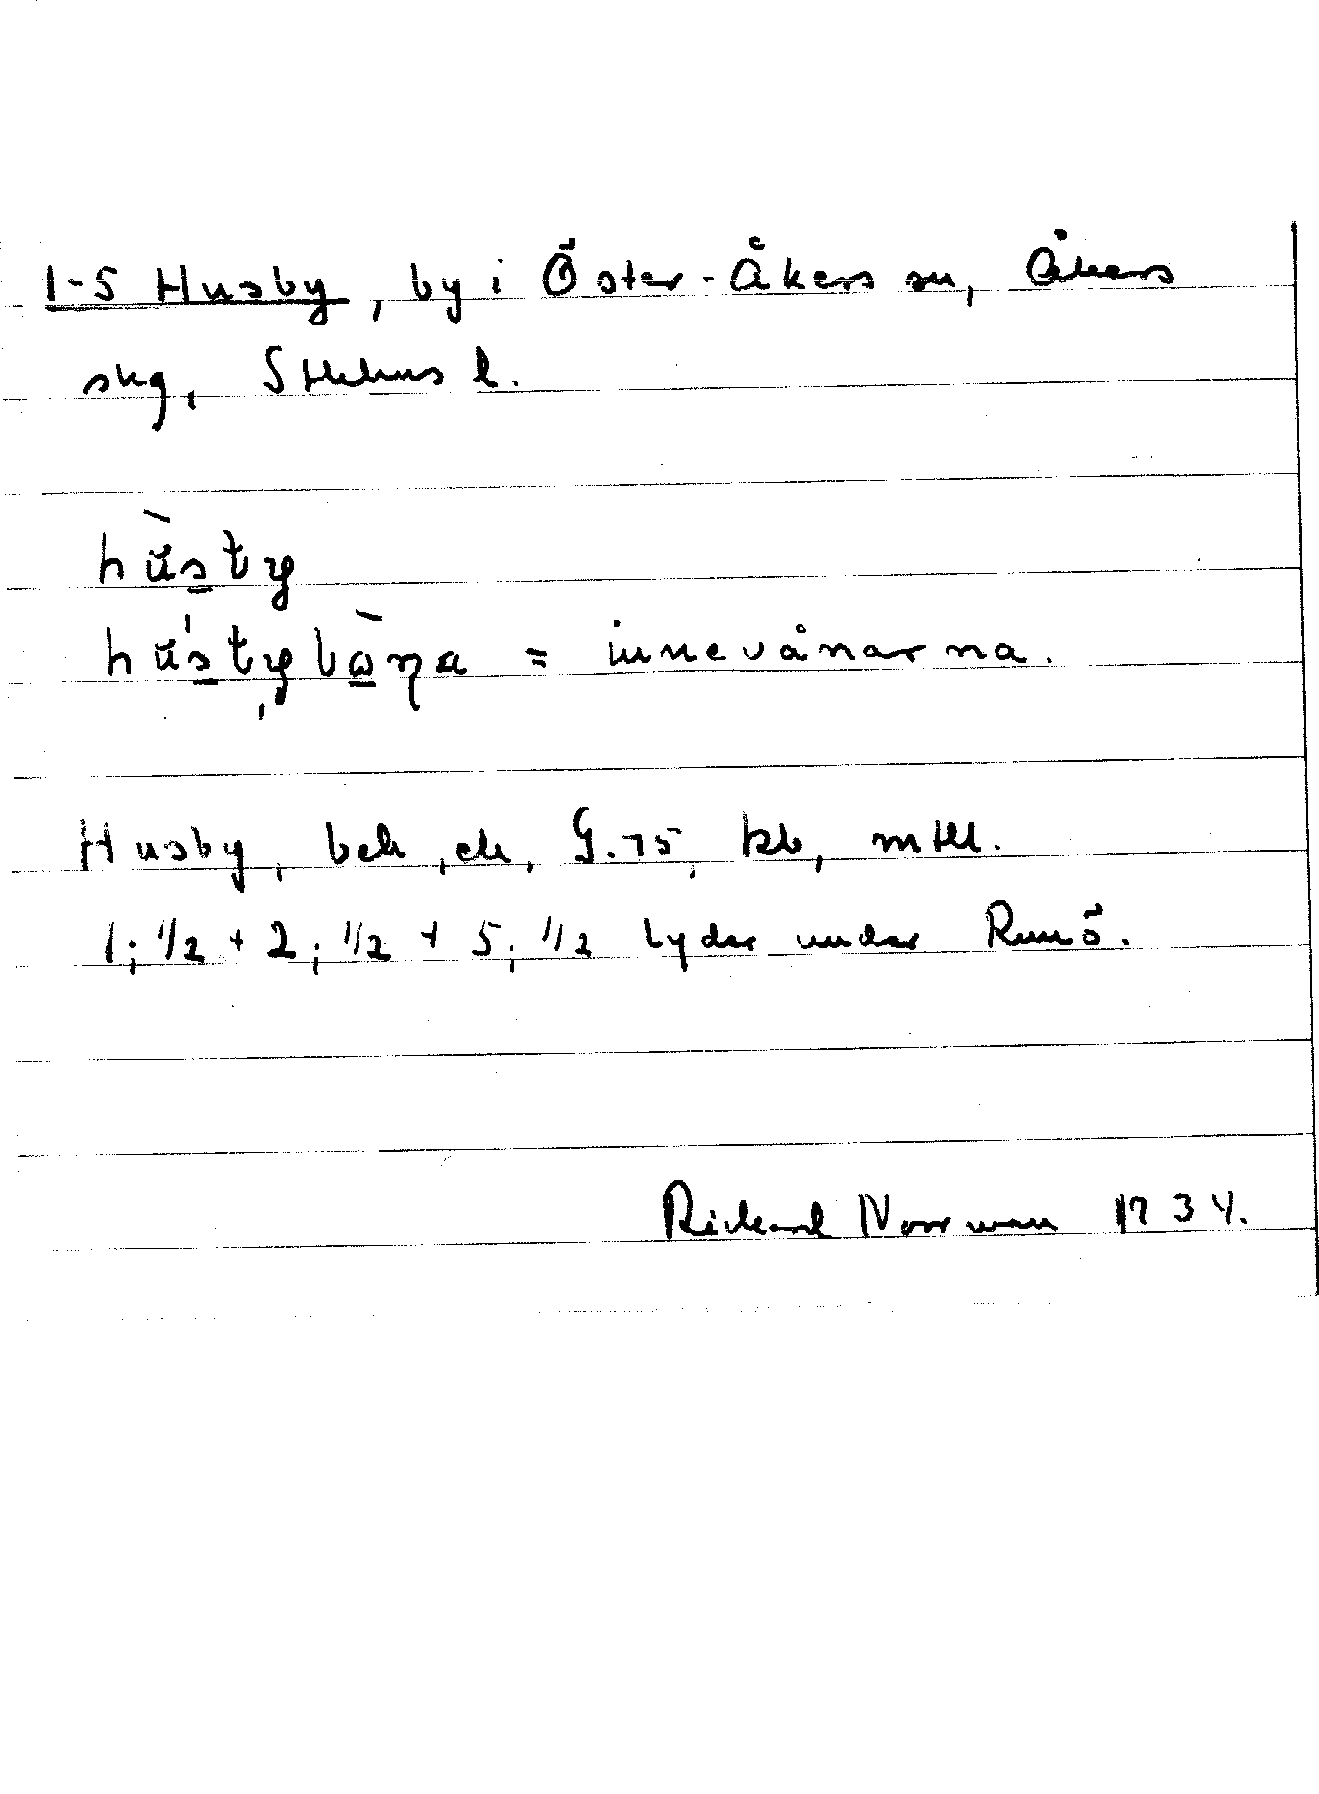 1-5 Husby, by i Öster-Åkers sn, Åkers
skg, Sthlms l.
hùsby
húsbybòna = innevånarna.
Husby, bek, ek, G.75, kb, mtll.
1; 1/2 + 2; 1/2 + 5; 1/2 lyder under Runö.
Rickard Norrman 1934.